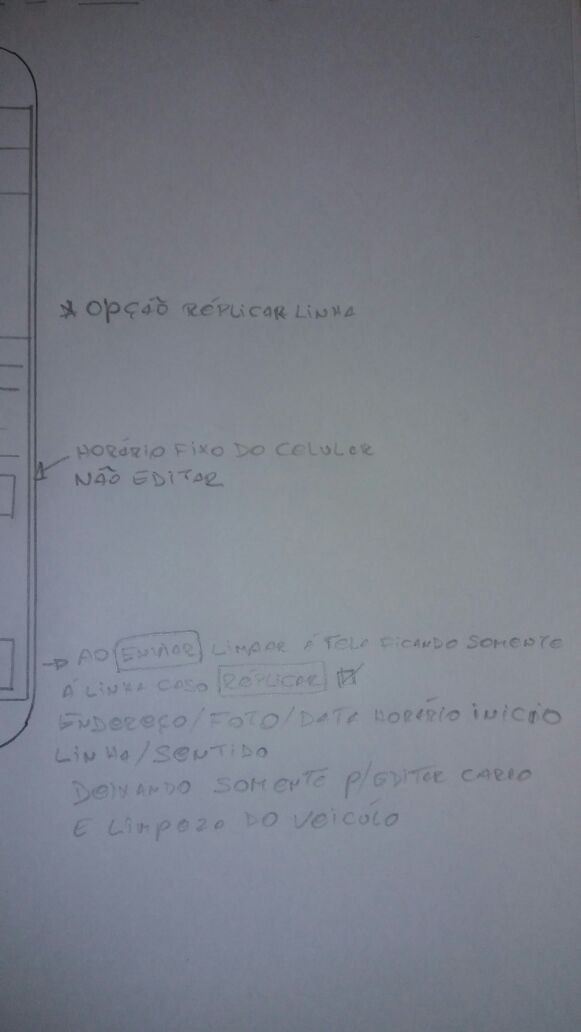 * OPÇÃO RÉPLICAR LINHA
HORÁRIO FIXO DO CELULAR
NÃO EDITAR
AO ENVIAR LIMPAR Á TELA FICANDO SOMENTE
Á LINHA CASO RÉPLICAR
ENDEREÇO/FOTO/DATA HORÁRIO INICIO
LINHA/SENTIDO
DEIXANDO SOMENTE P/EDITAR CARRO
E LIMPEZA DO VEICÚLO